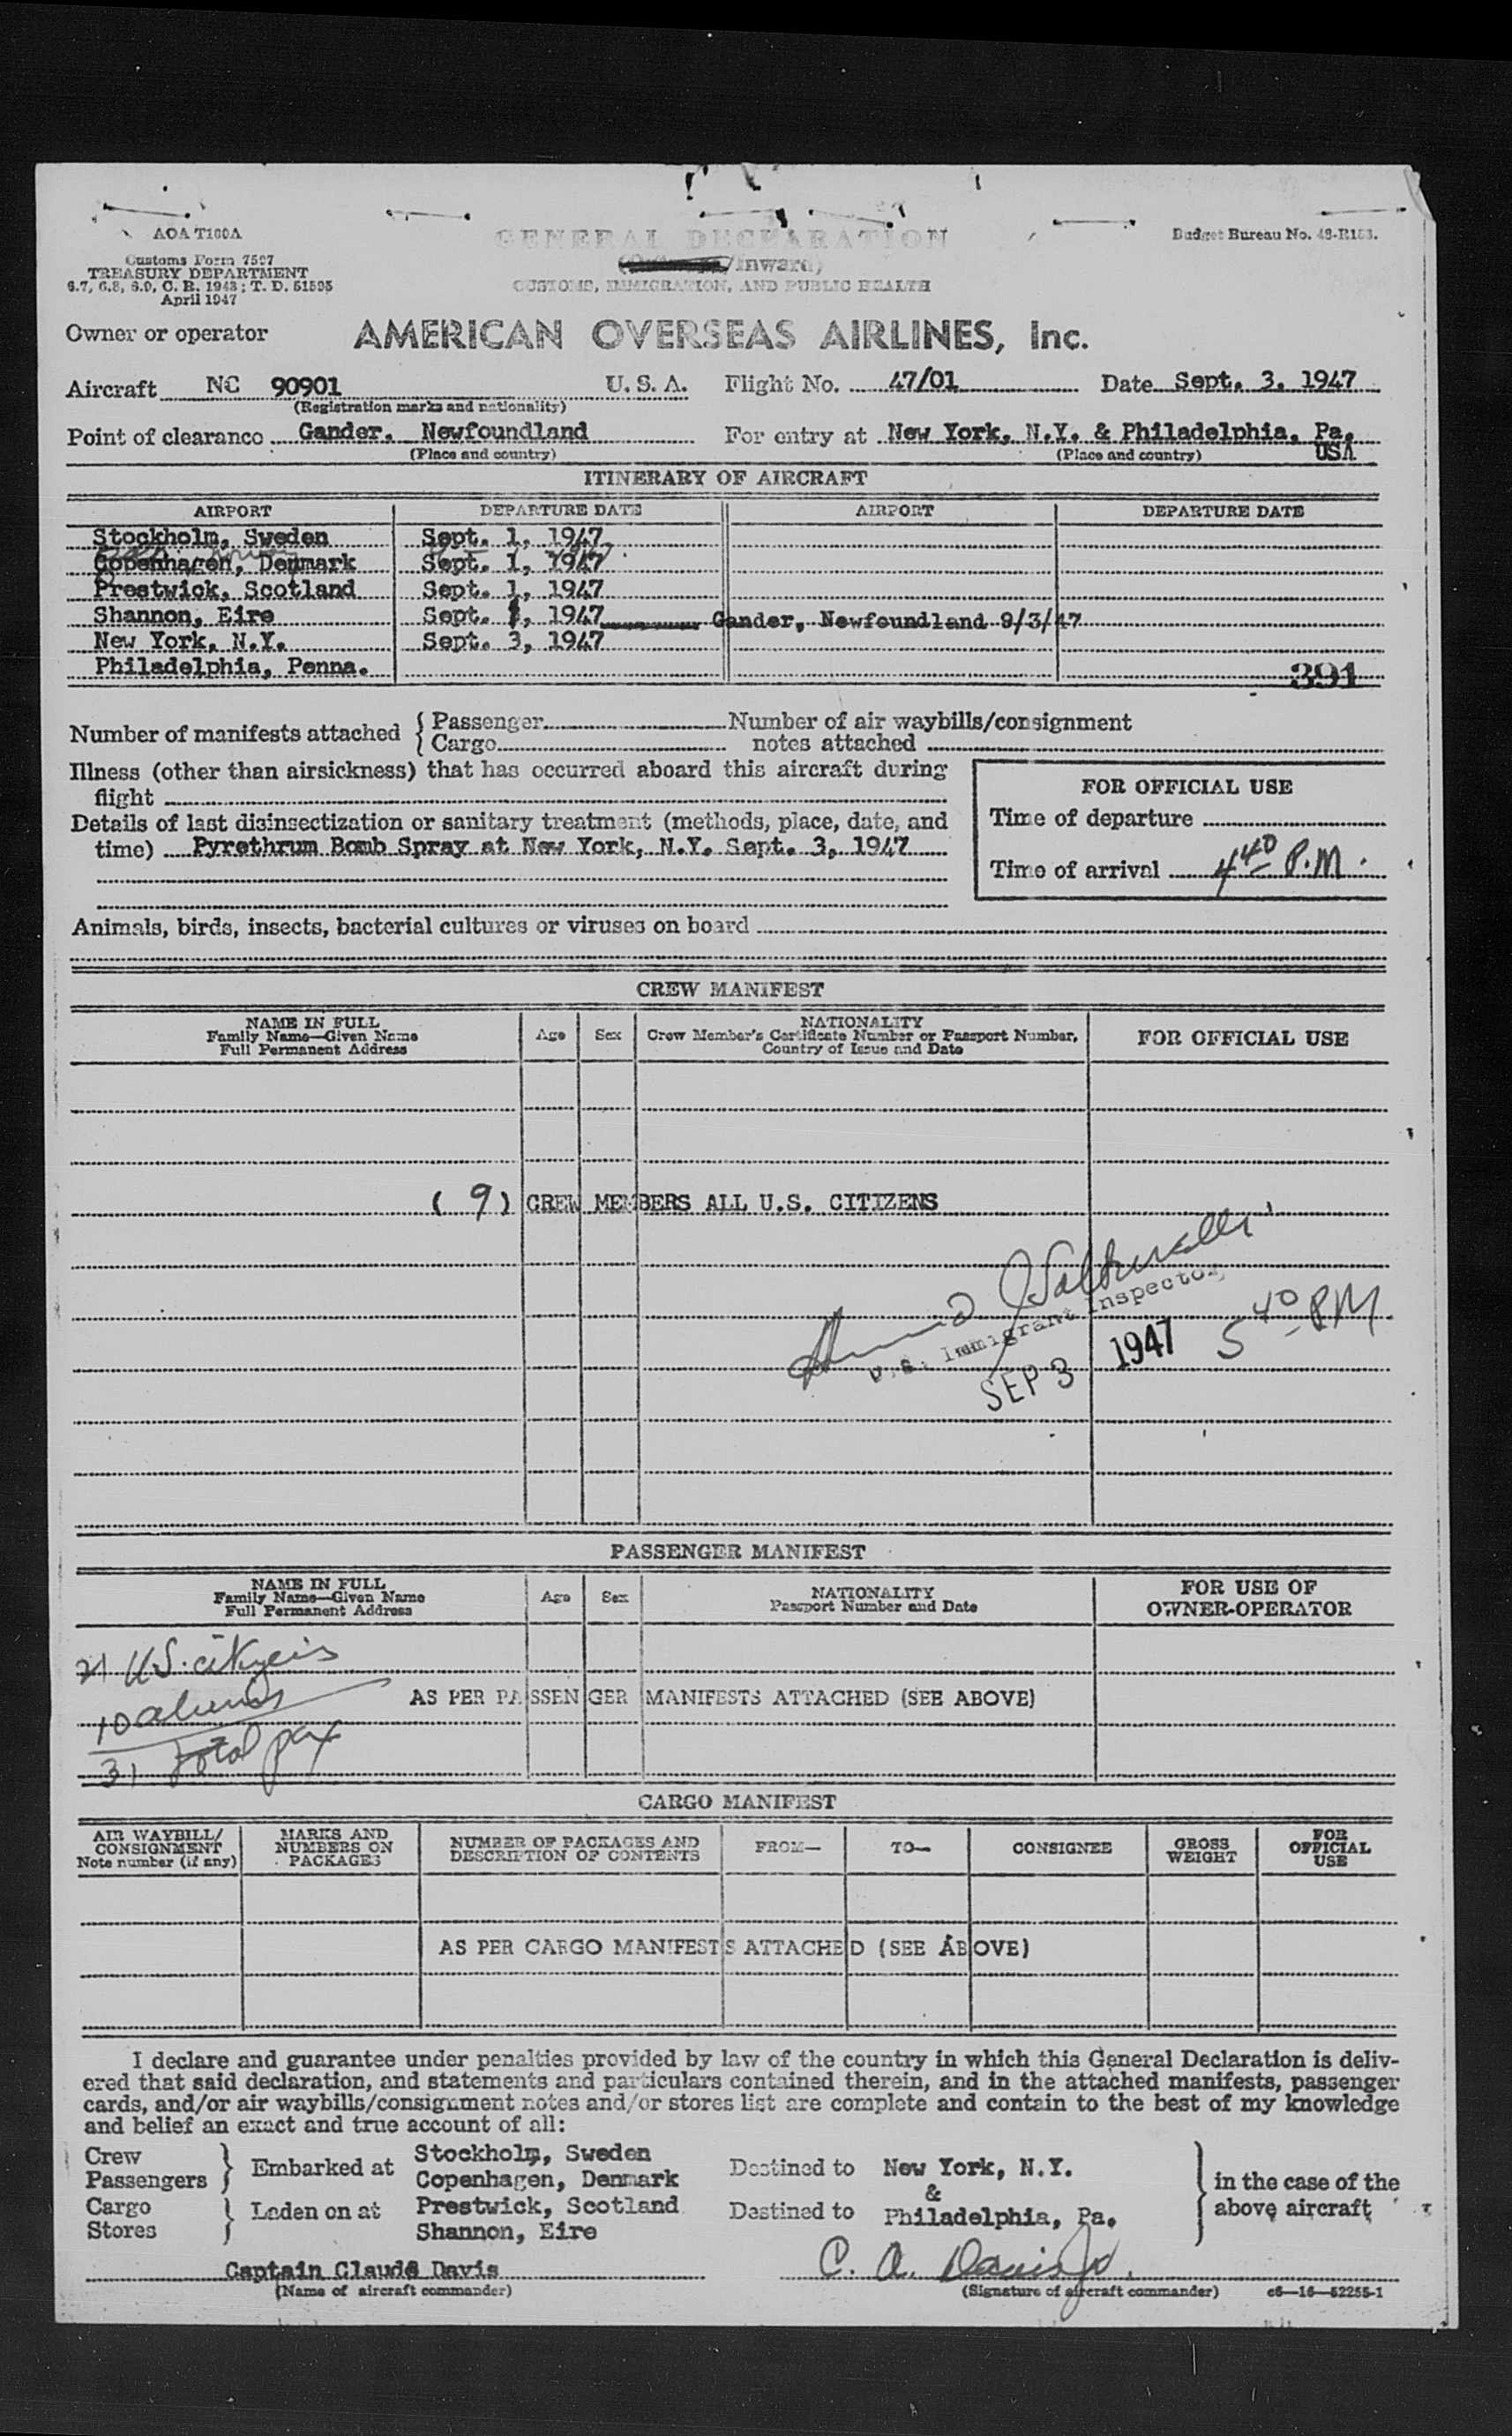 AOA T100A
Customs Form 7507
TREASURY DEPARTMENT
6.7, 6.8, 6.9, C. R. 1943; T. D. 51595
April 1947
GENERAL DECLARATION
/Inward)
CUSTOMS, IMMIGRATION, AND PUBLIC HEALTH
Budget Bureau No. 48-R153.
Owner or operator AMERICAN OVERSEAS AIRLINES, Inc.
Aircraft NC 90901 U. S. A. Flight No. 47/01 Date Sept. 3. 1947
(Registration marks and nationality)
Point of clearance Gander, Newfoundland For entry at New York, N.Y. & Philadelphia, Pa.
(Place and country) (Place and country) USA
ITINERARY OF AIRCRAFT
AIRPORT DEPARTURE DATE AIRPORT DEPARTURE DATE
Stockholm, Sweden Sept. 1, 1947
Copenhagen, Denmark Sept. 1, 1947
Prestwick, Scotland Sept. 1, 1947
Shannon, Eire Sept. , 1947 Gander, Newfoundland 9/3/47
New York, N.Y. Sept. 3, 1947
Philadelphia, Penna.
391
Number of manifests attached { Passenger Number of air waybills/consignment
Cargo notes attached
Illness (other than airsickness) that has occurred aboard this aircraft during
flight
FOR OFFICIAL USE
Details of last disinsectization or sanitary treatment (methods, place, date, and
time) Pyrethrum Bomb Spray at New York, N.Y. Sept. 3, 1947
Time of departure
Time of arrival 4 40 P.M.
Animals, birds, insects, bacterial cultures or viruses on board
CREW MANIFEST
NAME IN FULL
Family Name—Given Name
Full Permanent Address
Age
Sex
NATIONALITY
Crew Member's Certificate Number or Passport Number,
Country of Issue and Date
FOR OFFICIAL USE
( 9 ) CREW MEMBERS ALL U.S. CITIZENS
U.S. Immigrant Inspector
SEP 3 1947 5 40 PM
PASSENGER MANIFEST
NAME IN FULL
Family Name—Given Name
Full Permanent Address
Age
Sex
NATIONALITY
Passport Number and Date
FOR USE OF
OWNER-OPERATOR
21 U.S. citizens
10 aliens
AS PER PASSENGER MANIFESTS ATTACHED (SEE ABOVE)
31 total pax
CARGO MANIFEST
AIR WAYBILL/
CONSIGNMENT
Note number (if any)
MARKS AND
NUMBERS ON
PACKAGES
NUMBER OF PACKAGES AND
DESCRIPTION OF CONTENTS
FROM—
TO—
CONSIGNEE
GROSS
WEIGHT
FOR
OFFICIAL
USE
AS PER CARGO MANIFESTS ATTACHED (SEE ABOVE)
I declare and guarantee under penalties provided by law of the country in which this General Declaration is deliv-
ered that said declaration, and statements and particulars contained therein, and in the attached manifests, passenger
cards, and/or air waybills/consignment notes and/or stores list are complete and contain to the best of my knowledge
and belief an exact and true account of all:
Crew
Passengers } Embarked at
Cargo
Stores } Laden on at
Stockholm, Sweden
Copenhagen, Denmark
Prestwick, Scotland
Shannon, Eire
Destined to New York, N.Y.
&
Destined to Philadelphia, Pa.
} in the case of the
above aircraft
Captain Claude Davis C. A. Davis Jr.
(Name of aircraft commander) (Signature of aircraft commander) c6—16—52255-1